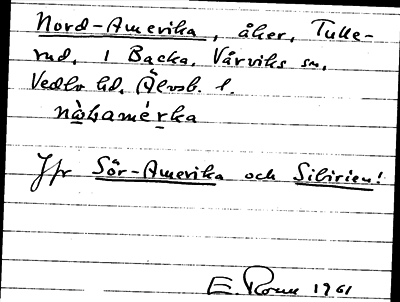 Nord-Amerika, åker, Tulle-
rud, 1 Backa, Vårviks sn,
Vedbo hd, Älvsb. l.
nòɷamérka
Jfr Sör-Amerika och Sibirien!
E. Rome 1961